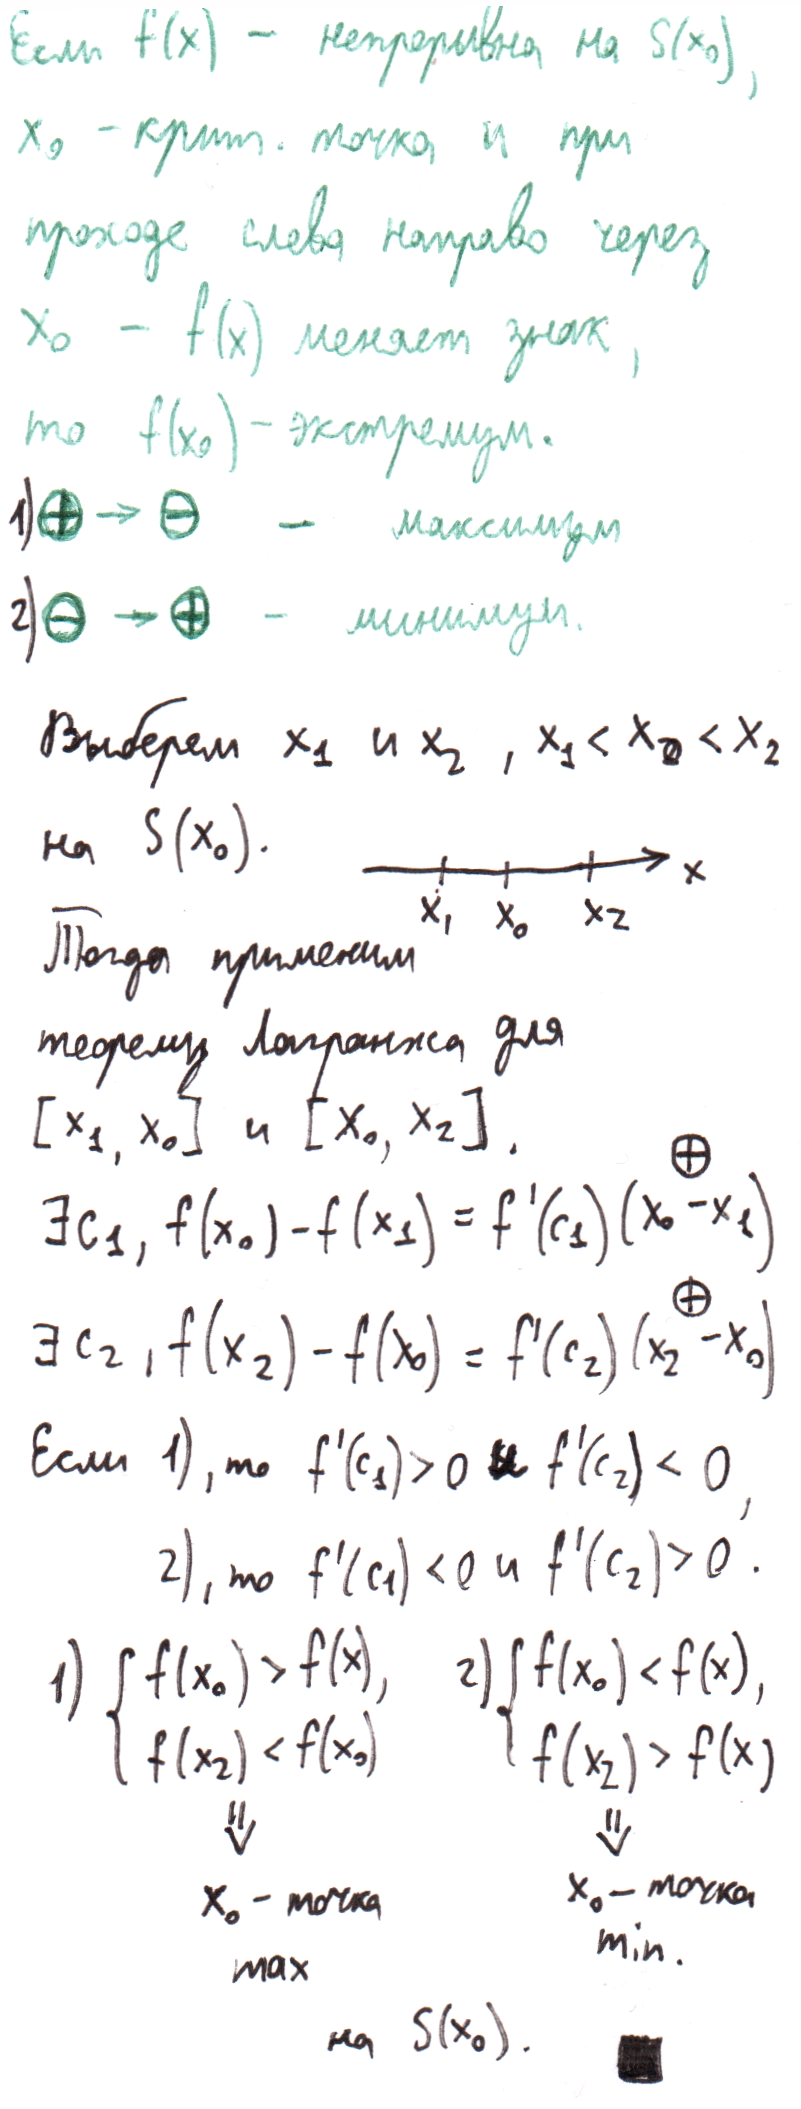 Если f(x) – непрерывна на S(x₀),
x₀ – крит. точка и при
проходе слева направо через
x₀ – f(x) меняет знак,
то f(x₀) – экстремум.
1) ⊕ → ⊖ – максимум
2) ⊖ → ⊕ – минимум.
Выберем x₁ и x₂, x₁ < x₀ < x₂
на S(x₀).
x
x₁ x₀ x₂
Тогда применим
теорему Лагранжа для
[x₁, x₀] и [x₀, x₂].
⊕
∃c₁, f(x₀) – f(x₁) = f'(c₁)(x₀ – x₁)
⊕
∃c₂, f(x₂) – f(x₀) = f'(c₂)(x₂ – x₀)
Если 1), то f'(c₁) > 0 и f'(c₂) < 0,
2), то f'(c₁) < 0 и f'(c₂) > 0.
1) { f(x₀) > f(x), 2) { f(x₀) < f(x),
f(x₂) < f(x₀) f(x₂) > f(x)
⇓ ⇓
x₀ – точка x₀ – точка
max min.
на S(x₀).